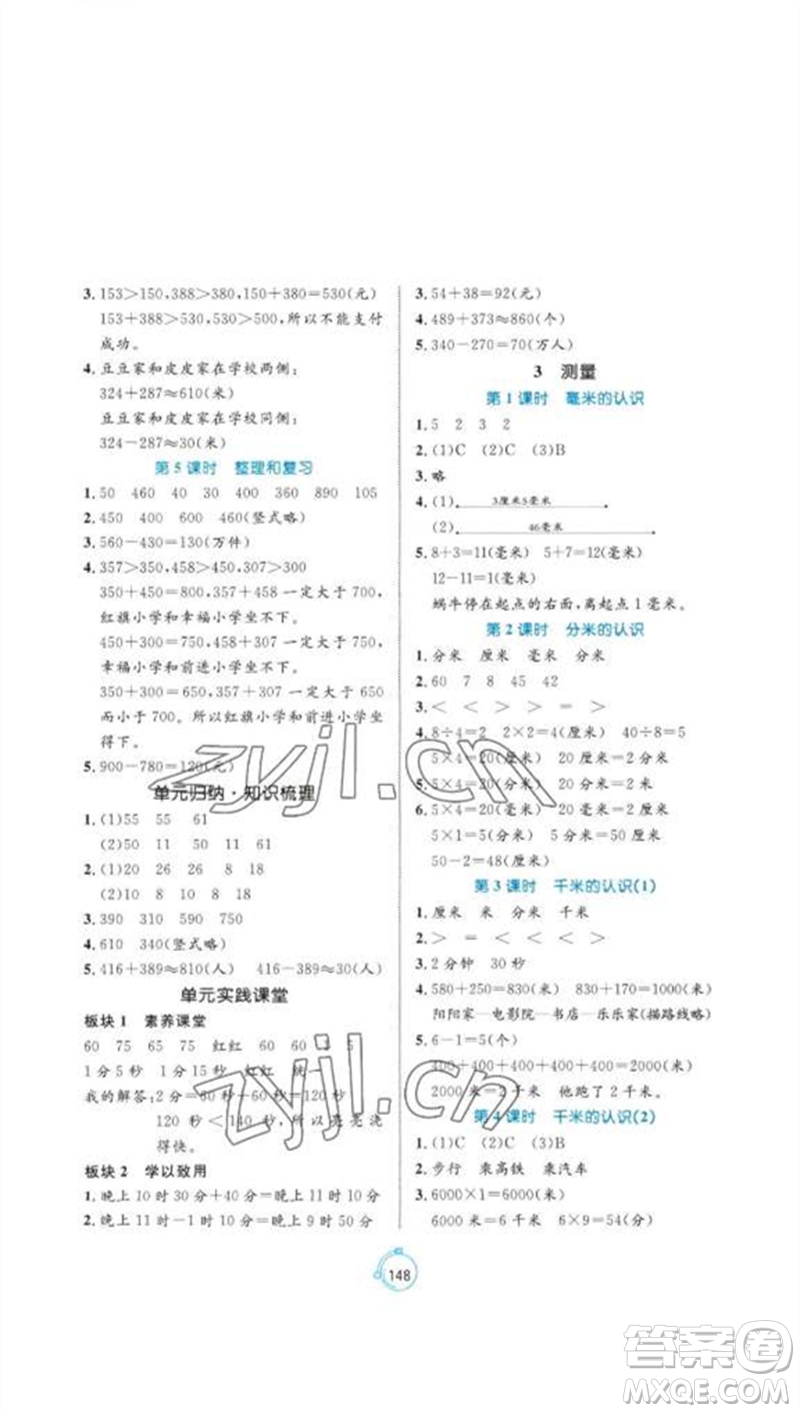 3. 153＞150,388＞380,150+380=530(元)
153+388＞530,530＞500,所以不能支付
成功。
4. 豆豆家和皮皮家在学校两侧:
324+287≈610(米)
豆豆家和皮皮家在学校同侧:
324-287≈30(米)
第 5 课时 整理和复习
1. 50 460 40 30 400 360 890 105
2. 450 400 600 460(竖式略)
3. 560-430=130(万件)
4. 357＞350,458＞450,307＞300
350+450=800,357+458 一定大于 700,
红旗小学和幸福小学坐不下。
450+300=750,458+307 一定大于 700,
幸福小学和前进小学坐不下。
350+300=650,357+307 一定大于 650
而小于 700。所以红旗小学和前进小学坐
得下。
5. 900-780=120(元)
单元归纳·知识梳理
1. (1)55 55 61
(2)50 11 50 11 61
2. (1)20 26 26 8 18
(2)10 8 10 8 18
3. 390 310 930 750
4. 610 340(竖式略)
5. 416+389≈810(人) 416-389≈30(人)
单元实践课堂
板块 1 素养课堂
60 75 65 75 红红 60 60 5 5
1 分 5 秒 1 分 15 秒 红红
我的解答:2 分=120 秒
120 秒＜140 秒,所以亮亮浇
得快。
板块 2 学以致用
1. 晚上 10 时 30 分+40 分=晚上 11 时 10 分
2. 晚上 11 时-1 时 10 分=晚上 9 时 50 分
3. 54+38=92(元)
4. 489+373≈860(个)
5. 340-270=70(万人)
3 测量
第 1 课时 毫米的认识
1. 5 2 3 2
2. (1)C (2)C (3)B
3. 略
4. (1) 3厘米5毫米
(2) 46毫米
5. 8+3=11(毫米) 5+7=12(毫米)
12-11=1(毫米)
蜗牛停在起点的右面,离起点 1 毫米。
第 2 课时 分米的认识
1. 分米 厘米 毫米 分米
2. 60 7 8 45 42
3. ＜ ＜ ＜ ＞ = ＞
4. 8÷4=2 2×2=4(厘米) 40÷8=5
5×4=20(厘米) 20 厘米=2 分米
5. 5×4=20(分米) 20 分米=2 米
6. 5×4=20(毫米) 20 毫米=2 厘米
5×1=5(分米) 5 分米=50 厘米
50-2=48(厘米)
第 3 课时 千米的认识(1)
1. 厘米 米 分米 千米
2. ＞ = ＜ ＜ ＞ ＞
3. 2 分钟 30 秒
4. 580+250=830(米) 830 米＜1 千米
阳阳家—电影院—书店—乐乐家(描路线略)
5. 6-1=5(个)
400+400+400+400+400=2000(米)
2000 米=2 千米 他跑了 2 千米。
第 4 课时 千米的认识(2)
1. (1)C (2)C (3)B
2. 步行 乘高铁 乘汽车
3. 6000×1=6000(米)
6000 米=6 千米 6×9=54(分)
148
zyjl.cn
zyjl.cn
答案圈
MXQE.COM